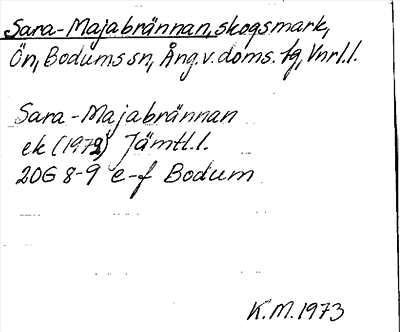 Sara-Majabrännan, skogsmark,
Ön, Bodums sn, Ång. v. doms. tg, Vnrl.l.
Sara-Majabrännan
ek (1972) Jämtl.l.
20G 8-9 e-f Bodum
K.M. 1973